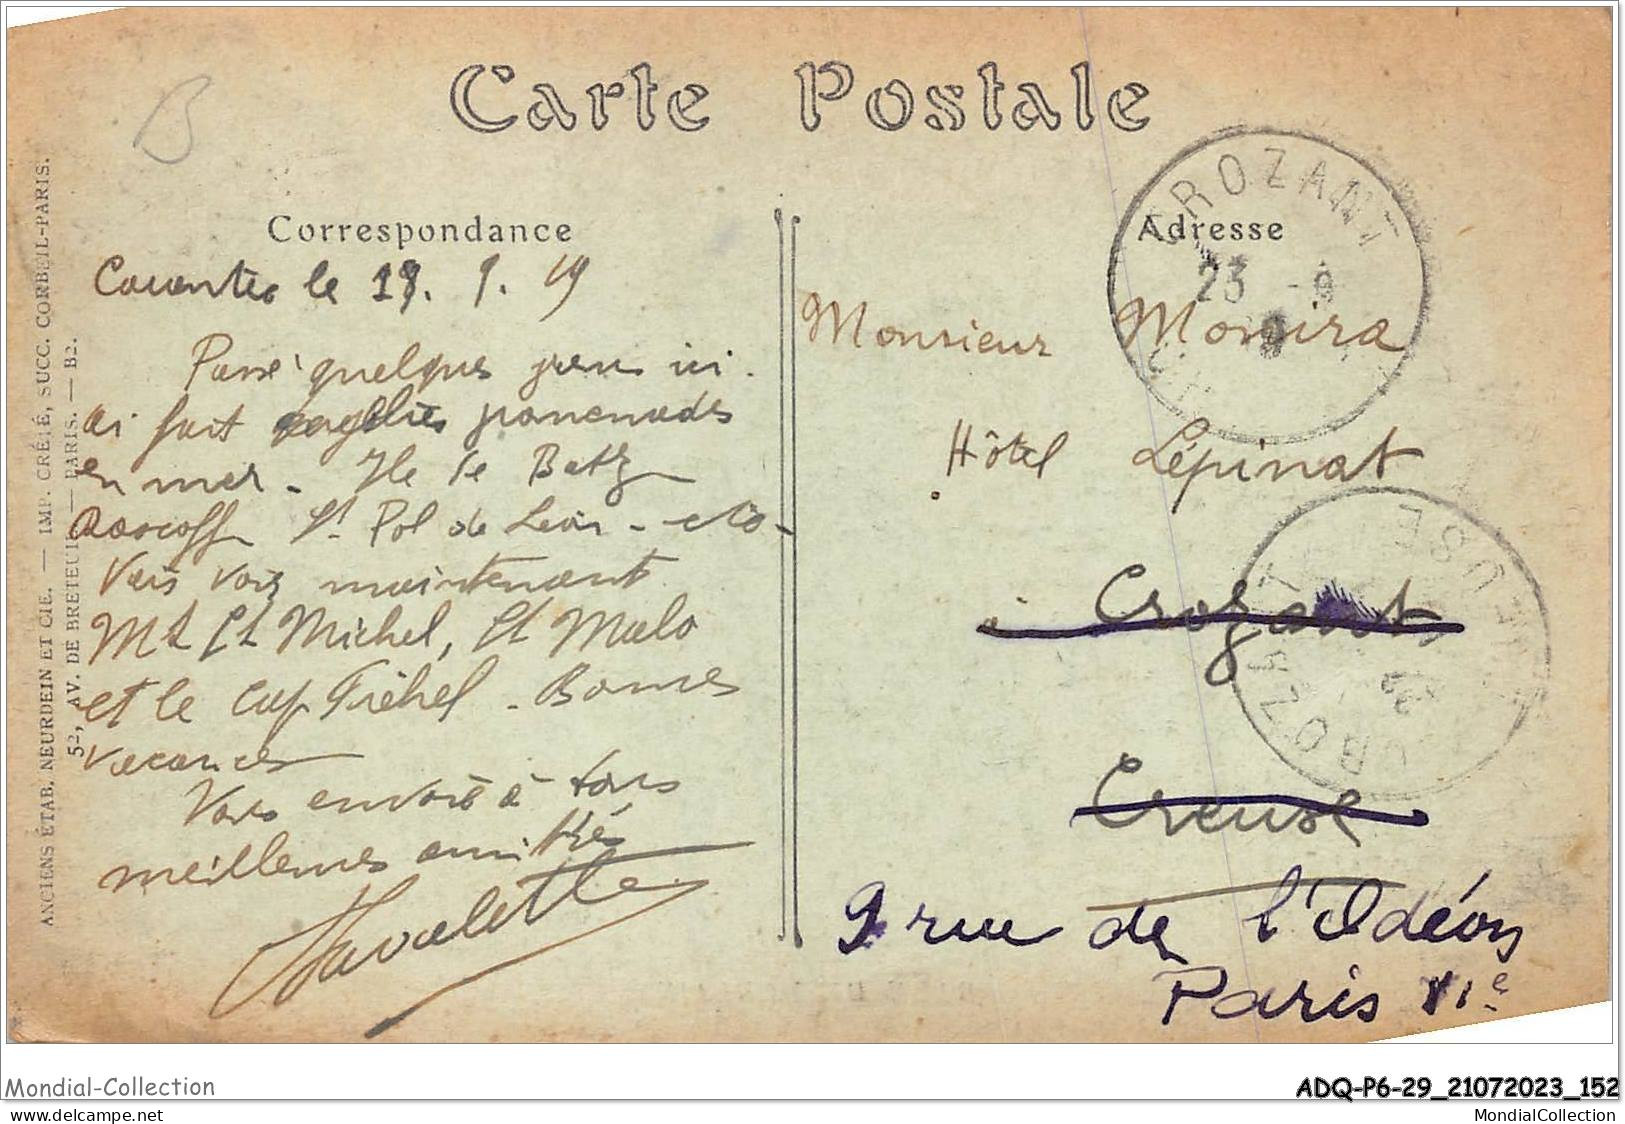 Carte Postale
B
Correspondance
Adresse
Carantec le 19. 9. 19
Passé quelques jours ici.
ai fait quelques promenades
en mer - Ile de Batz
Roscoff St Pol de Léon - etc -
Vais voir maintenant
Mt St Michel, St Malo
et le Cap Fréhel - Bonnes
vacances
Vous envoie à tous
meilleures amitiés
Lavalette
Monsieur
Hôtel Lépinat
à Crozant
Creuse
9 rue de l'Odéon
Paris VIe
CROZANT
23 - 9
CROZANT
CREUSE
ANCIENS ÉTAB. NEURDEIN ET CIE. — IMP. CRÉTÉ, SUCC. CORBEIL-PARIS.
52, AV. DE BRETEUIL — PARIS. — B2.
Mondial-Collection
www.delcampe.net
ADQ-P6-29_21072023_152
MondialCollection